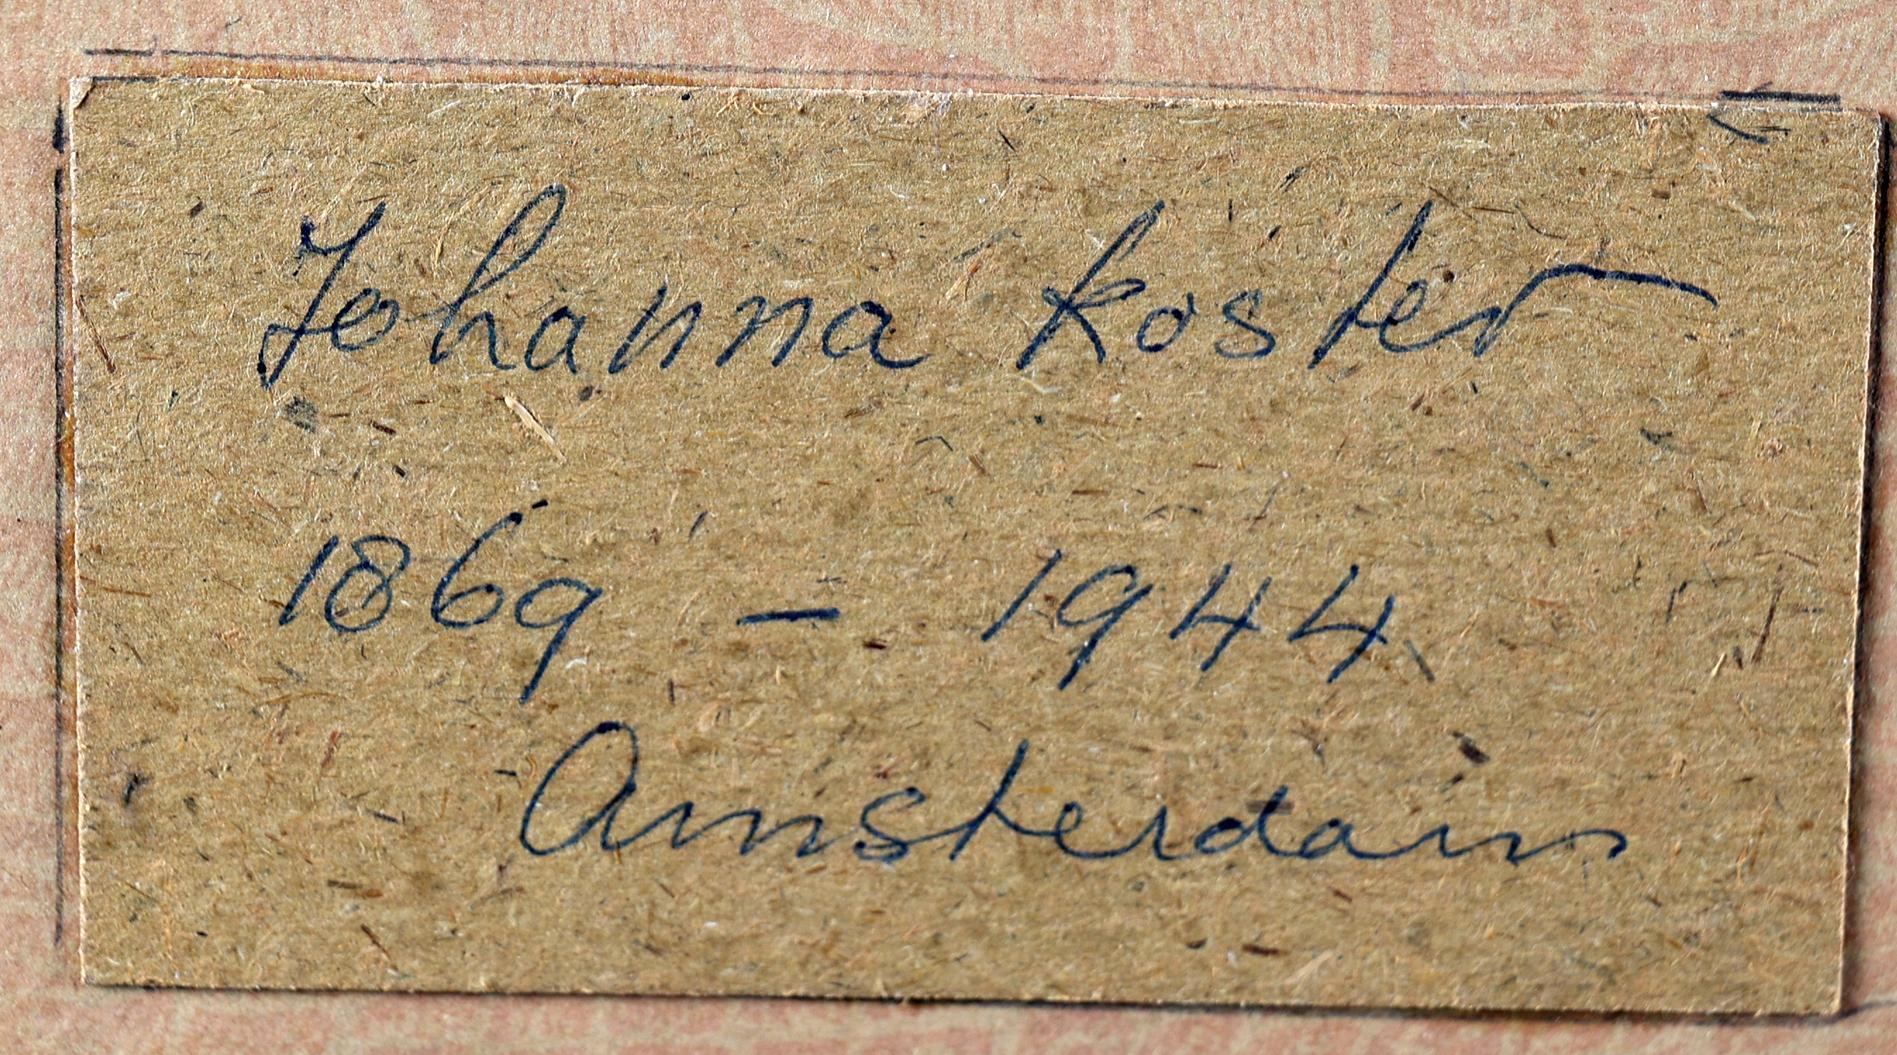 Johanna Koster
1869 - 1944
Amsterdam